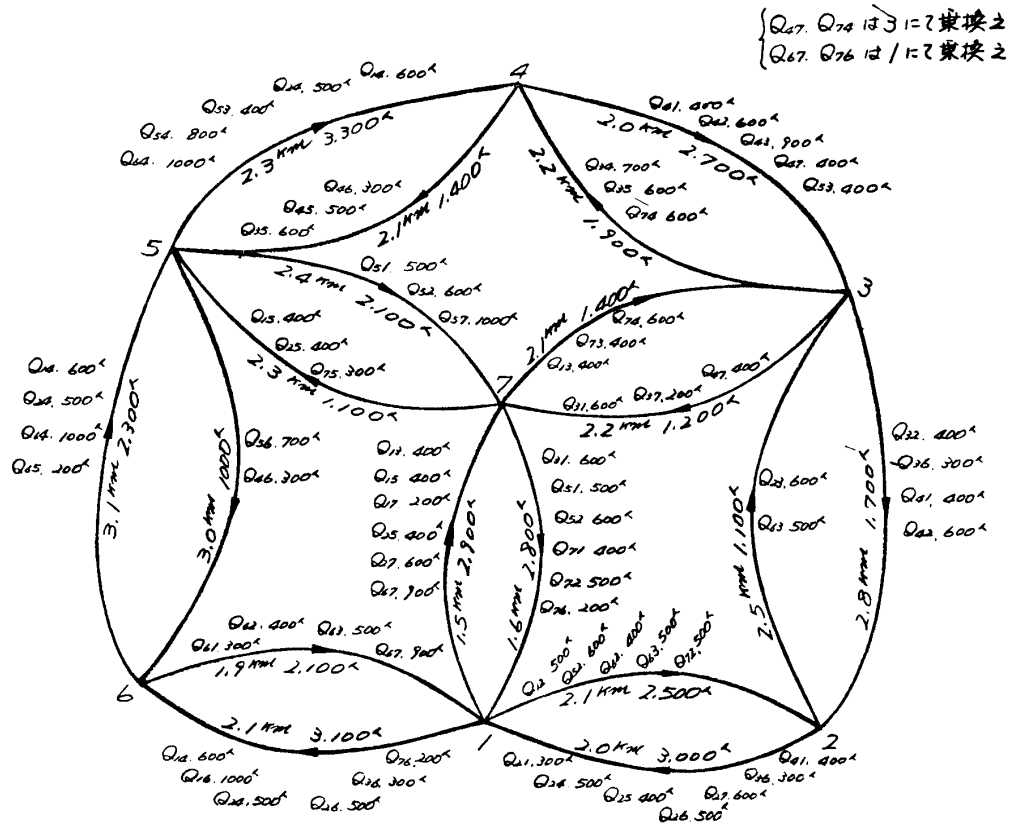 Q47. Q74 は 3 にて乗換え
Q67. Q76 は 1 にて乗換え
4
Q24. 500人 Q14. 600人
Q53. 400人
Q54. 800人
Q64. 1000人
2.3 km 3.300人
Q41. 400人
Q42. 600人
Q43. 900人
Q47. 400人
Q53. 400人
2.0 km 2.700人
Q46. 300人
Q45. 500人
Q35. 600人
2.1 km 1.400人
Q34. 700人
Q35 600人
Q74 600人
2.2 km 1.900人
5
Q51. 500人
Q52. 600人
Q57. 1000人
2.4 km 2.100人
3
Q15. 400人
Q25. 400人
Q75. 300人
2.3 km 1.100人
2.1 km 1.400人
Q74. 600人
Q73. 400人
Q13. 400人
7
Q31. 600人 Q37. 200人 Q47. 400人
2.2 km 1.200人
Q14. 600人
Q24. 500人
Q64. 1000人
Q65. 200人
3.1 km 2.300人
Q56. 700人
Q46. 300人
3.0 km 1000人
Q13. 400人
Q15 400人
Q17 200人
Q25. 400人
Q27. 600人
Q67. 900人
1.5 km 2.900人
Q31. 600人
Q51. 500人
Q52 600人
Q71 400人
Q72 500人
Q76. 200人
1.6 km 2.800人
Q23. 600人
Q63 500人
2.5 km 1.100人
Q32. 400人
Q36. 300人
Q41. 400人
Q42. 600人
2.8 km 1.700人
Q62. 400人 Q63. 500人
Q61. 300人 Q67. 900人
1.9 km 2.100人
Q12 500人 Q52. 600人 Q62. 400人 Q63. 500人 Q72. 500人
2.1 km 2.500人
6
1
2
2.1 km 3.100人
Q14. 600人
Q16. 1000人
Q24. 500人
Q26. 500人
Q36. 300人
Q76. 200人
2.0 km 3.000人
Q21. 300人
Q24. 500人
Q25 400人
Q26. 500人
Q27. 600人
Q36. 300人
Q41. 400人